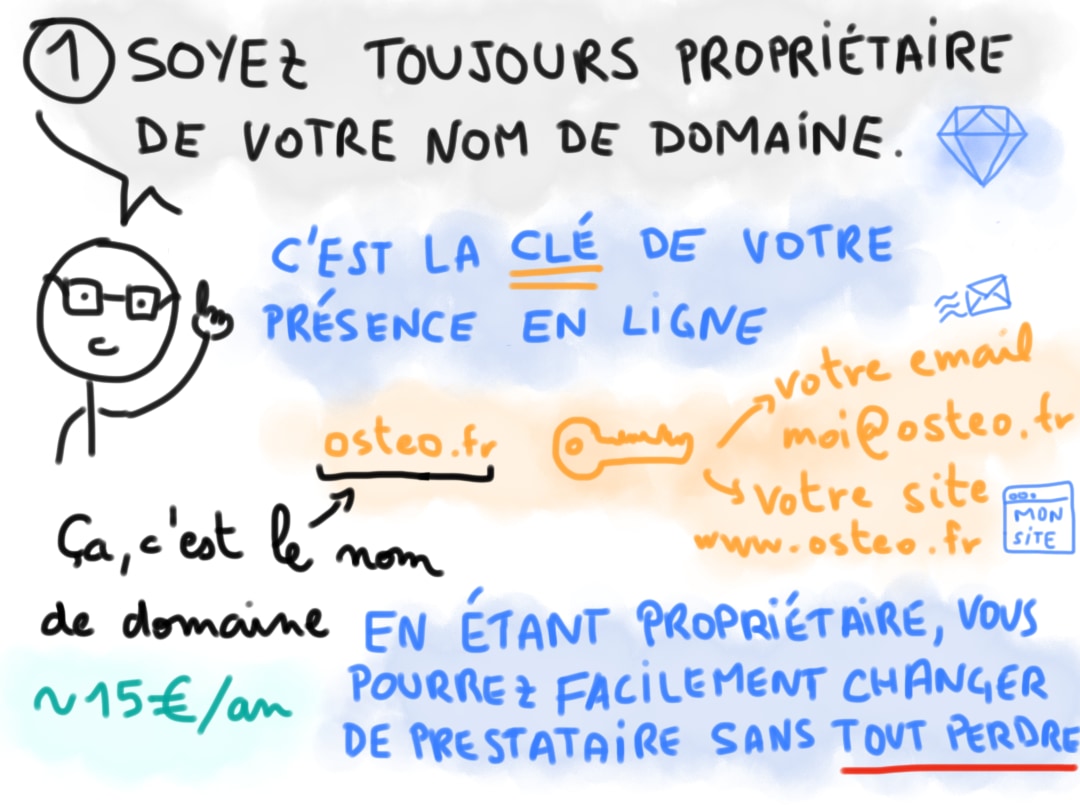 1 SOYEZ TOUJOURS PROPRIÉTAIRE
DE VOTRE NOM DE DOMAINE.
C'EST LA CLÉ DE VOTRE
PRÉSENCE EN LIGNE
osteo.fr
votre email
moi@osteo.fr
votre site
www.osteo.fr
MON
SITE
Ça, c'est le nom
de domaine
~15€/an
EN ÉTANT PROPRIÉTAIRE, VOUS
POURREZ FACILEMENT CHANGER
DE PRESTATAIRE SANS TOUT PERDRE